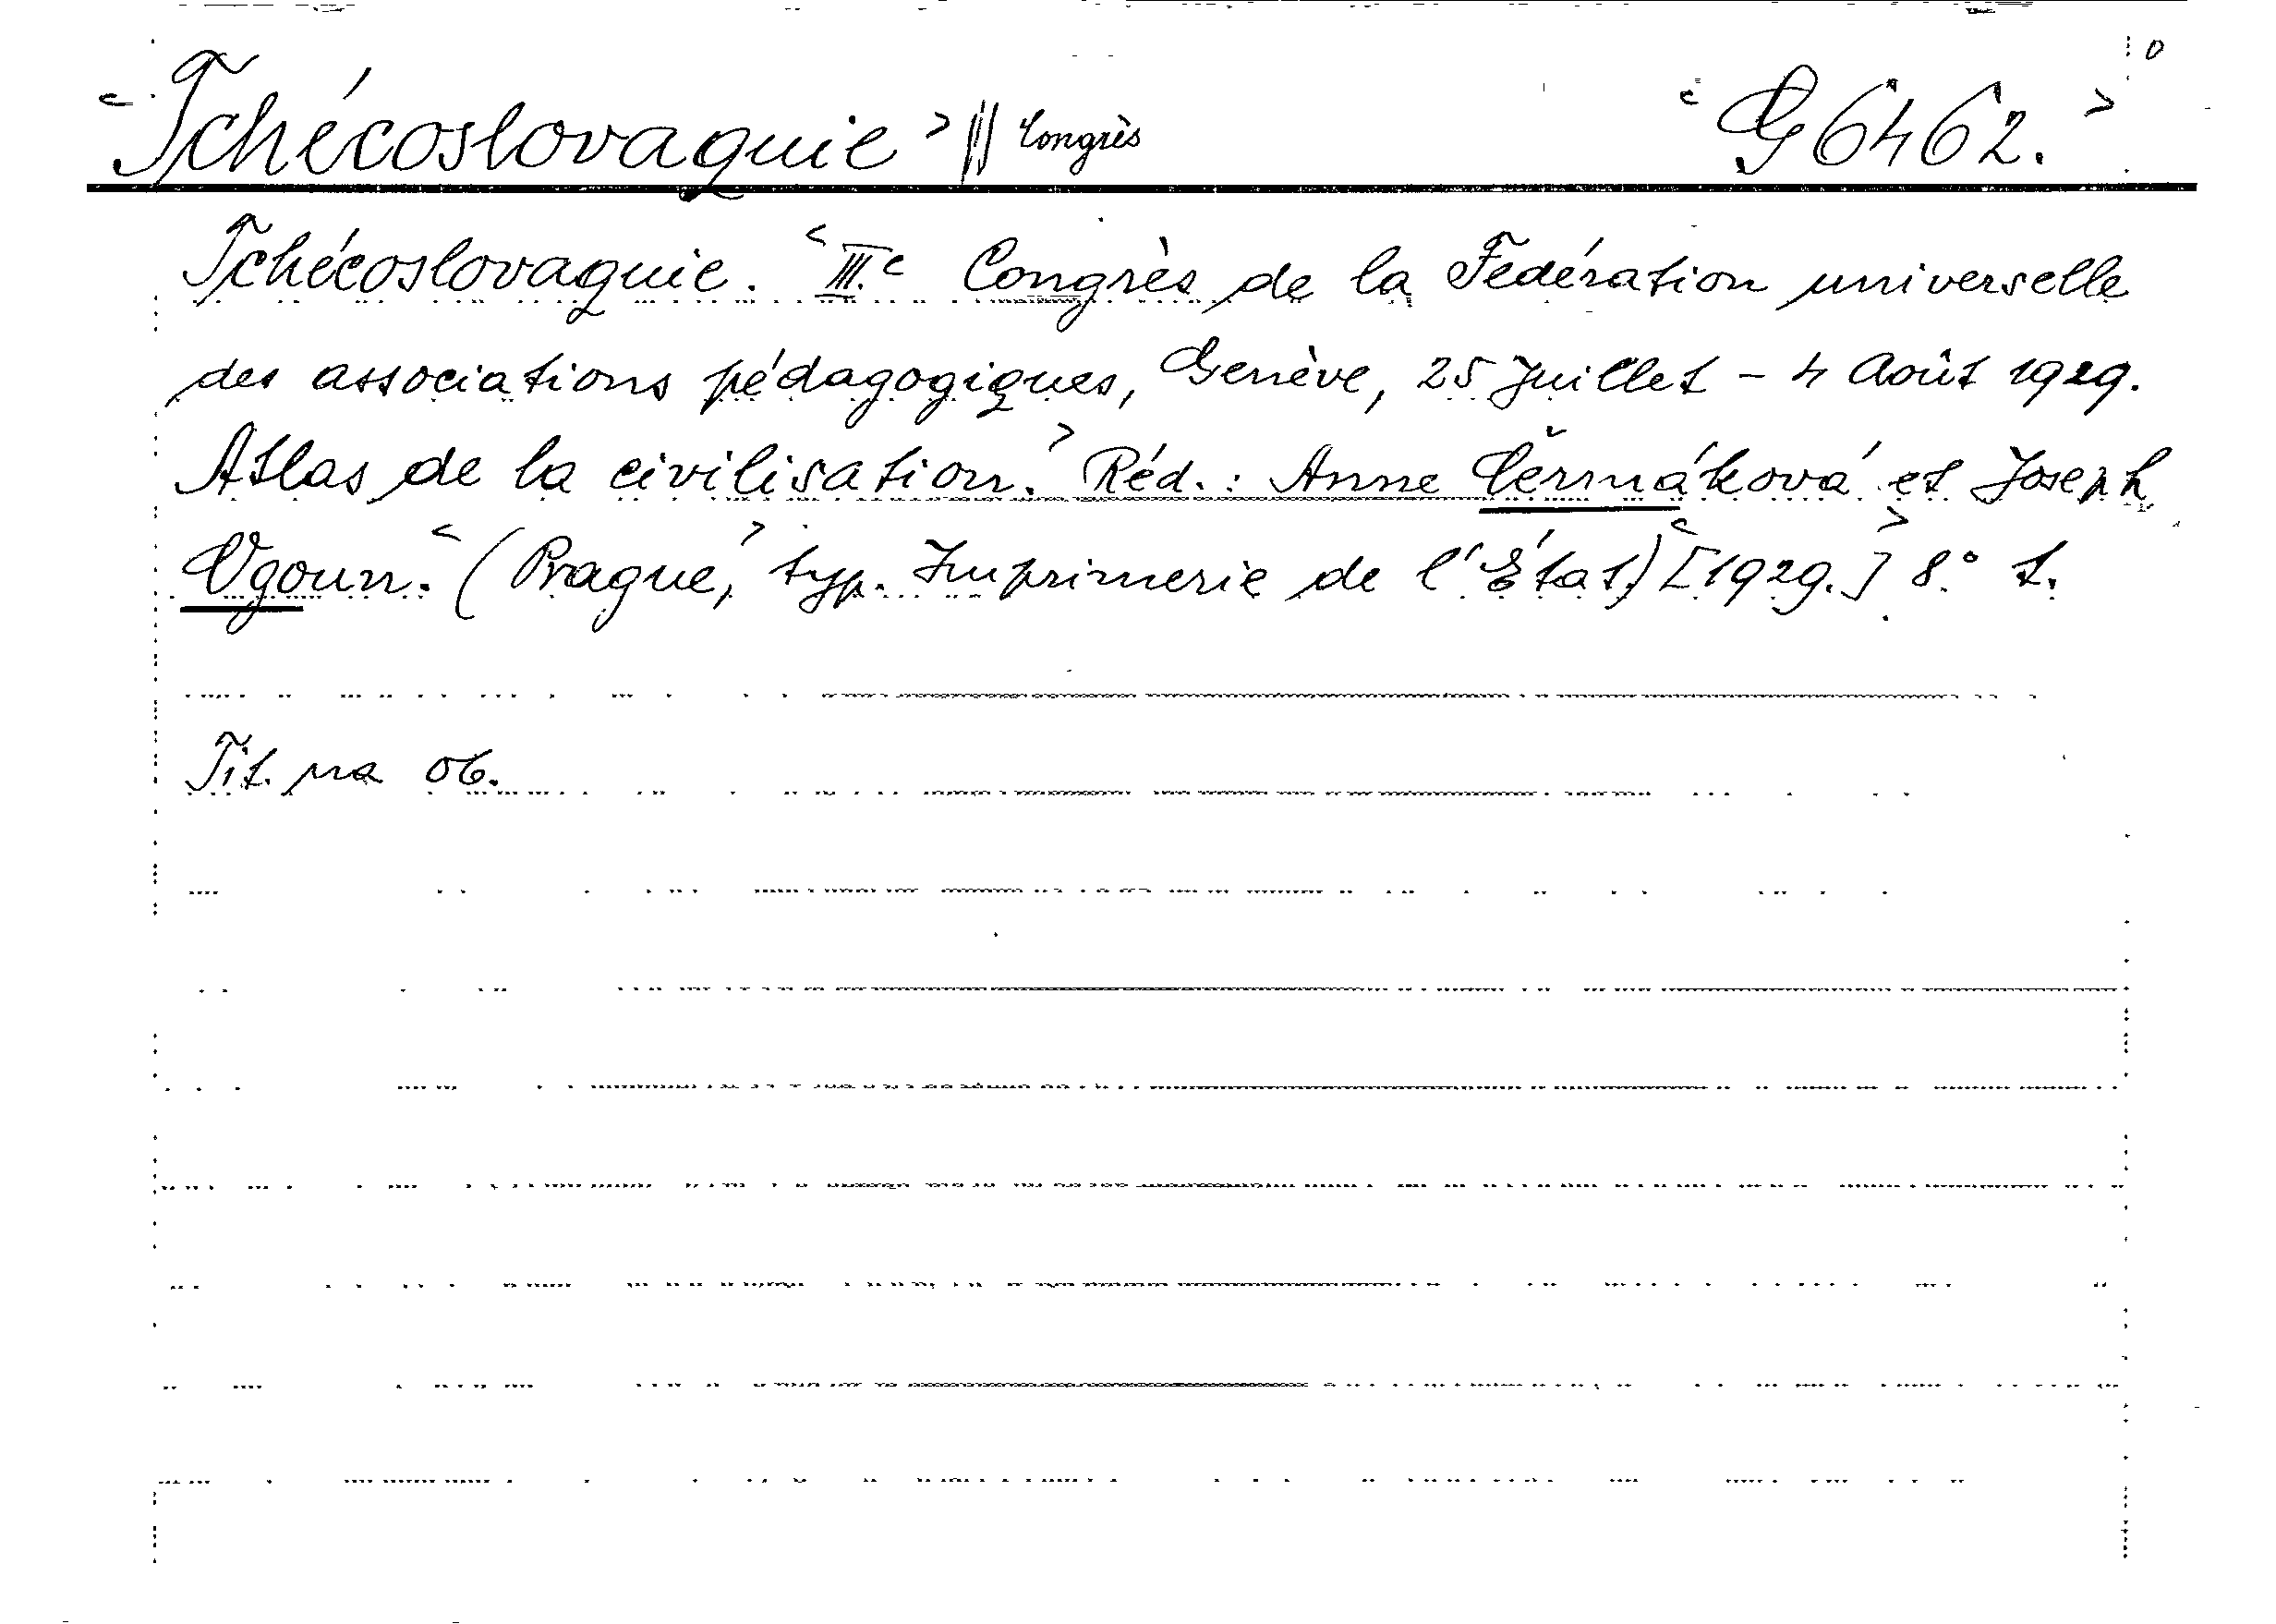 <Tchécoslovaquie> /// Congrès <G 6462.>
Tchécoslovaquie. <III.e Congrès de la Fédération universelle
des associations pédagogiques, Genève, 25 Juillet - 4 Août 1929.
Atlas de la civilisation.> Réd.: Anne Čermáková et Joseph
Vgoun. <(Prague,> typ. Imprimerie de l'État) <[1929.]> 8° 1.
Tit. na ob.